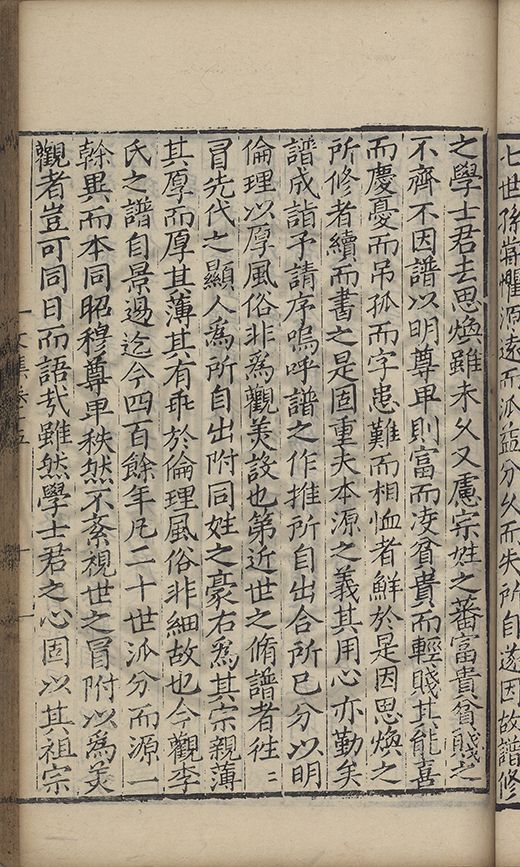 七世孫懼源遠而派益分久而失所自遂因故譜修
之學士君去思煥雖未久又慮宗姓之蕃富貴貧賤之
不齊不因譜以明尊卑則富而凌貧貴而輕賤其能喜
而慶憂而吊孤而字患難而相恤者鮮於是因思煥之
所修者續而書之是固重夫本源之義其用心亦勤矣
譜成詣予請序嗚呼譜之作推所自出合所已分以明
倫理以厚風俗非為觀美設也第近世之脩譜者往〻
冒先代之顯人為所自出附同姓之豪右為其宗親薄
其厚而厚其薄其有乖於倫理風俗非細故也今觀李
氏之譜自景過迄今四百餘年凡二十世派分而源一
榦異而本同昭穆尊卑秩然不紊視世之冒附以為美
觀者豈可同日而語哉雖然學士君之心固以其祖宗